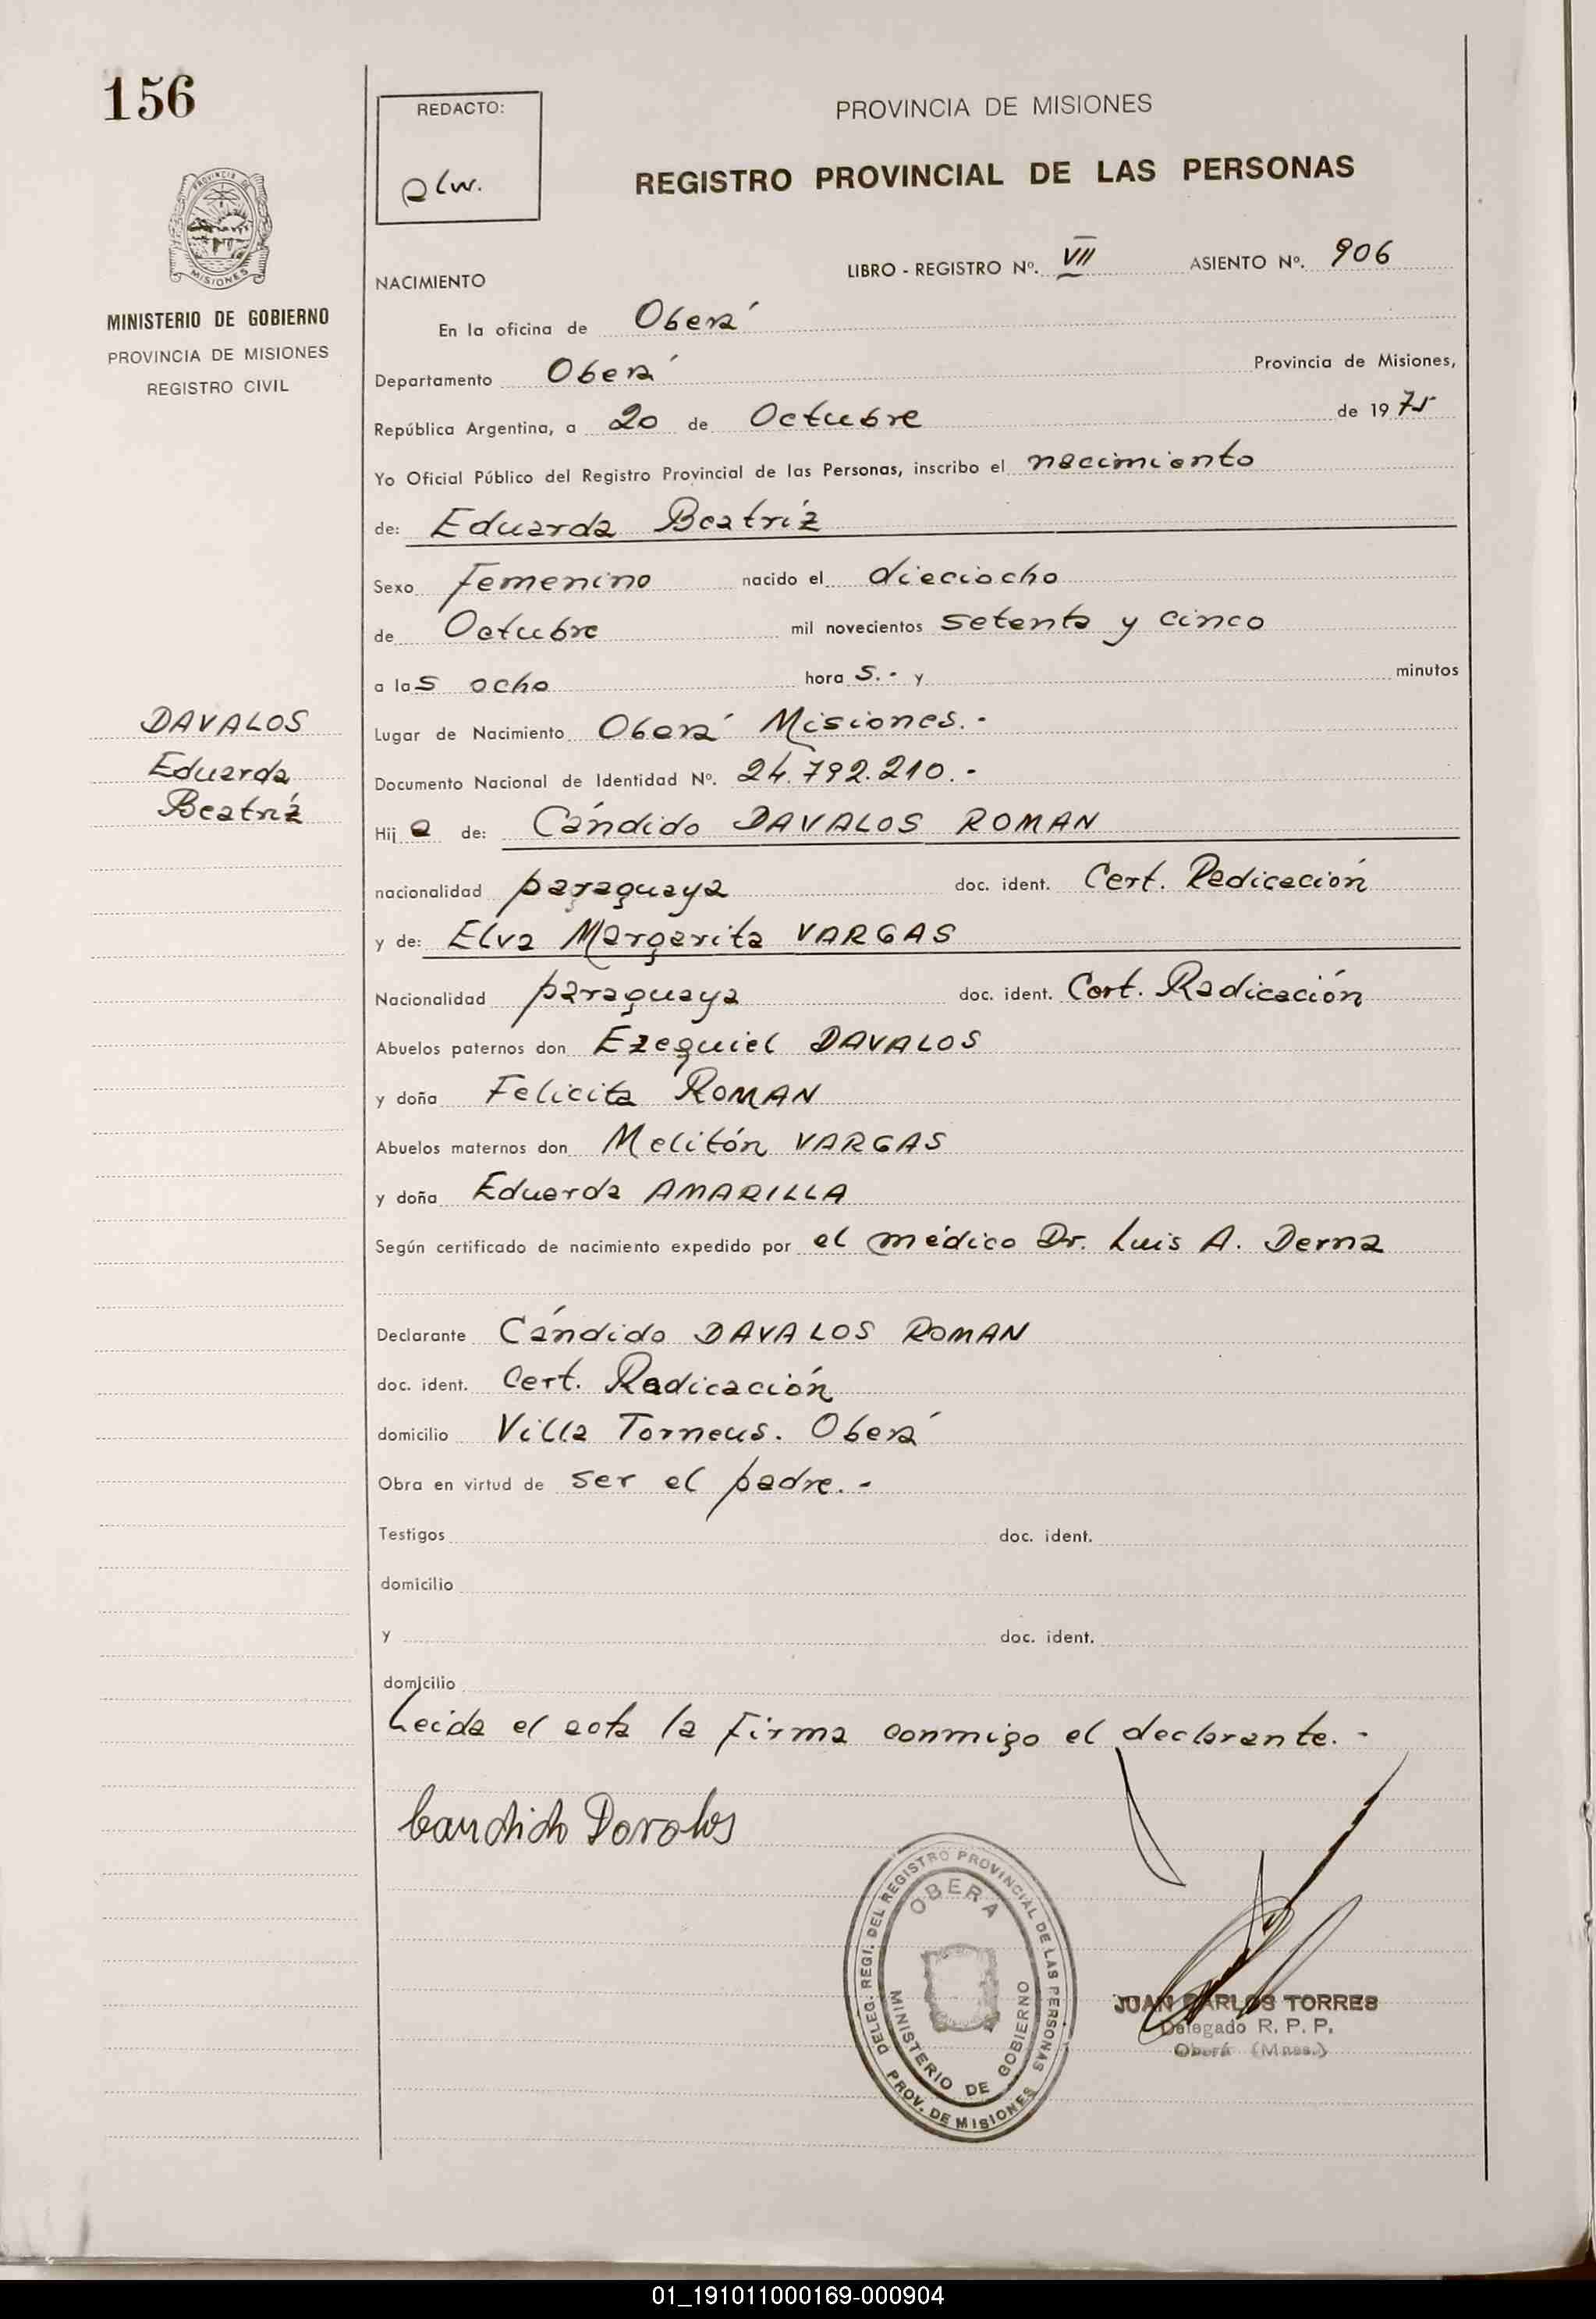 156
REDACTO:
PROVINCIA DE MISIONES
REGISTRO PROVINCIAL DE LAS PERSONAS
PROVINCIA DE
MISIONES
MINISTERIO DE GOBIERNO
PROVINCIA DE MISIONES
REGISTRO CIVIL
LIBRO - REGISTRO Nº. VII ASIENTO Nº. 906
NACIMIENTO
En la oficina de Oberá
Departamento Oberá Provincia de Misiones,
República Argentina, a 20 de Octubre de 1975
Yo Oficial Público del Registro Provincial de las Personas, inscribo el nacimiento
de: Eduarda Beatríz
Sexo Femenino nacido el dieciocho
de Octubre mil novecientos setenta y cinco
a las ocho hora s.- y minutos
DAVALOS
Eduarda
Beatríz
Lugar de Nacimiento Oberá Misiones.-
Documento Nacional de Identidad Nº. 24.792.210.-
Hij a de: Cándido DAVALOS ROMAN
nacionalidad paraguaya doc. ident. Cert. Radicación
y de: Elva Margarita VARGAS
Nacionalidad paraguaya doc. ident. Cert. Radicación
Abuelos paternos don Ezequiel DAVALOS
y doña Felicita ROMAN
Abuelos maternos don Melitón VARGAS
y doña Eduarda AMARILLA
Según certificado de nacimiento expedido por el médico Dr. Luis A. Derna
Declarante Cándido DAVALOS ROMAN
doc. ident. Cert. Radicación
domicilio Villa Torneus. Oberá
Obra en virtud de ser el padre.-
Testigos doc. ident.
domicilio
y doc. ident.
domicilio
Leida el acta la firma conmigo el declarante.-
Candido Davalos
DELEG. REGI. DEL REGISTRO PROVINCIAL DE LAS PERSONAS
OBERA
MINISTERIO DE GOBIERNO
PROV. DE MISIONES
JUAN CARLOS TORRES
Delegado R. P. P.
Oberá (Mnes.)
01_191011000169-000904